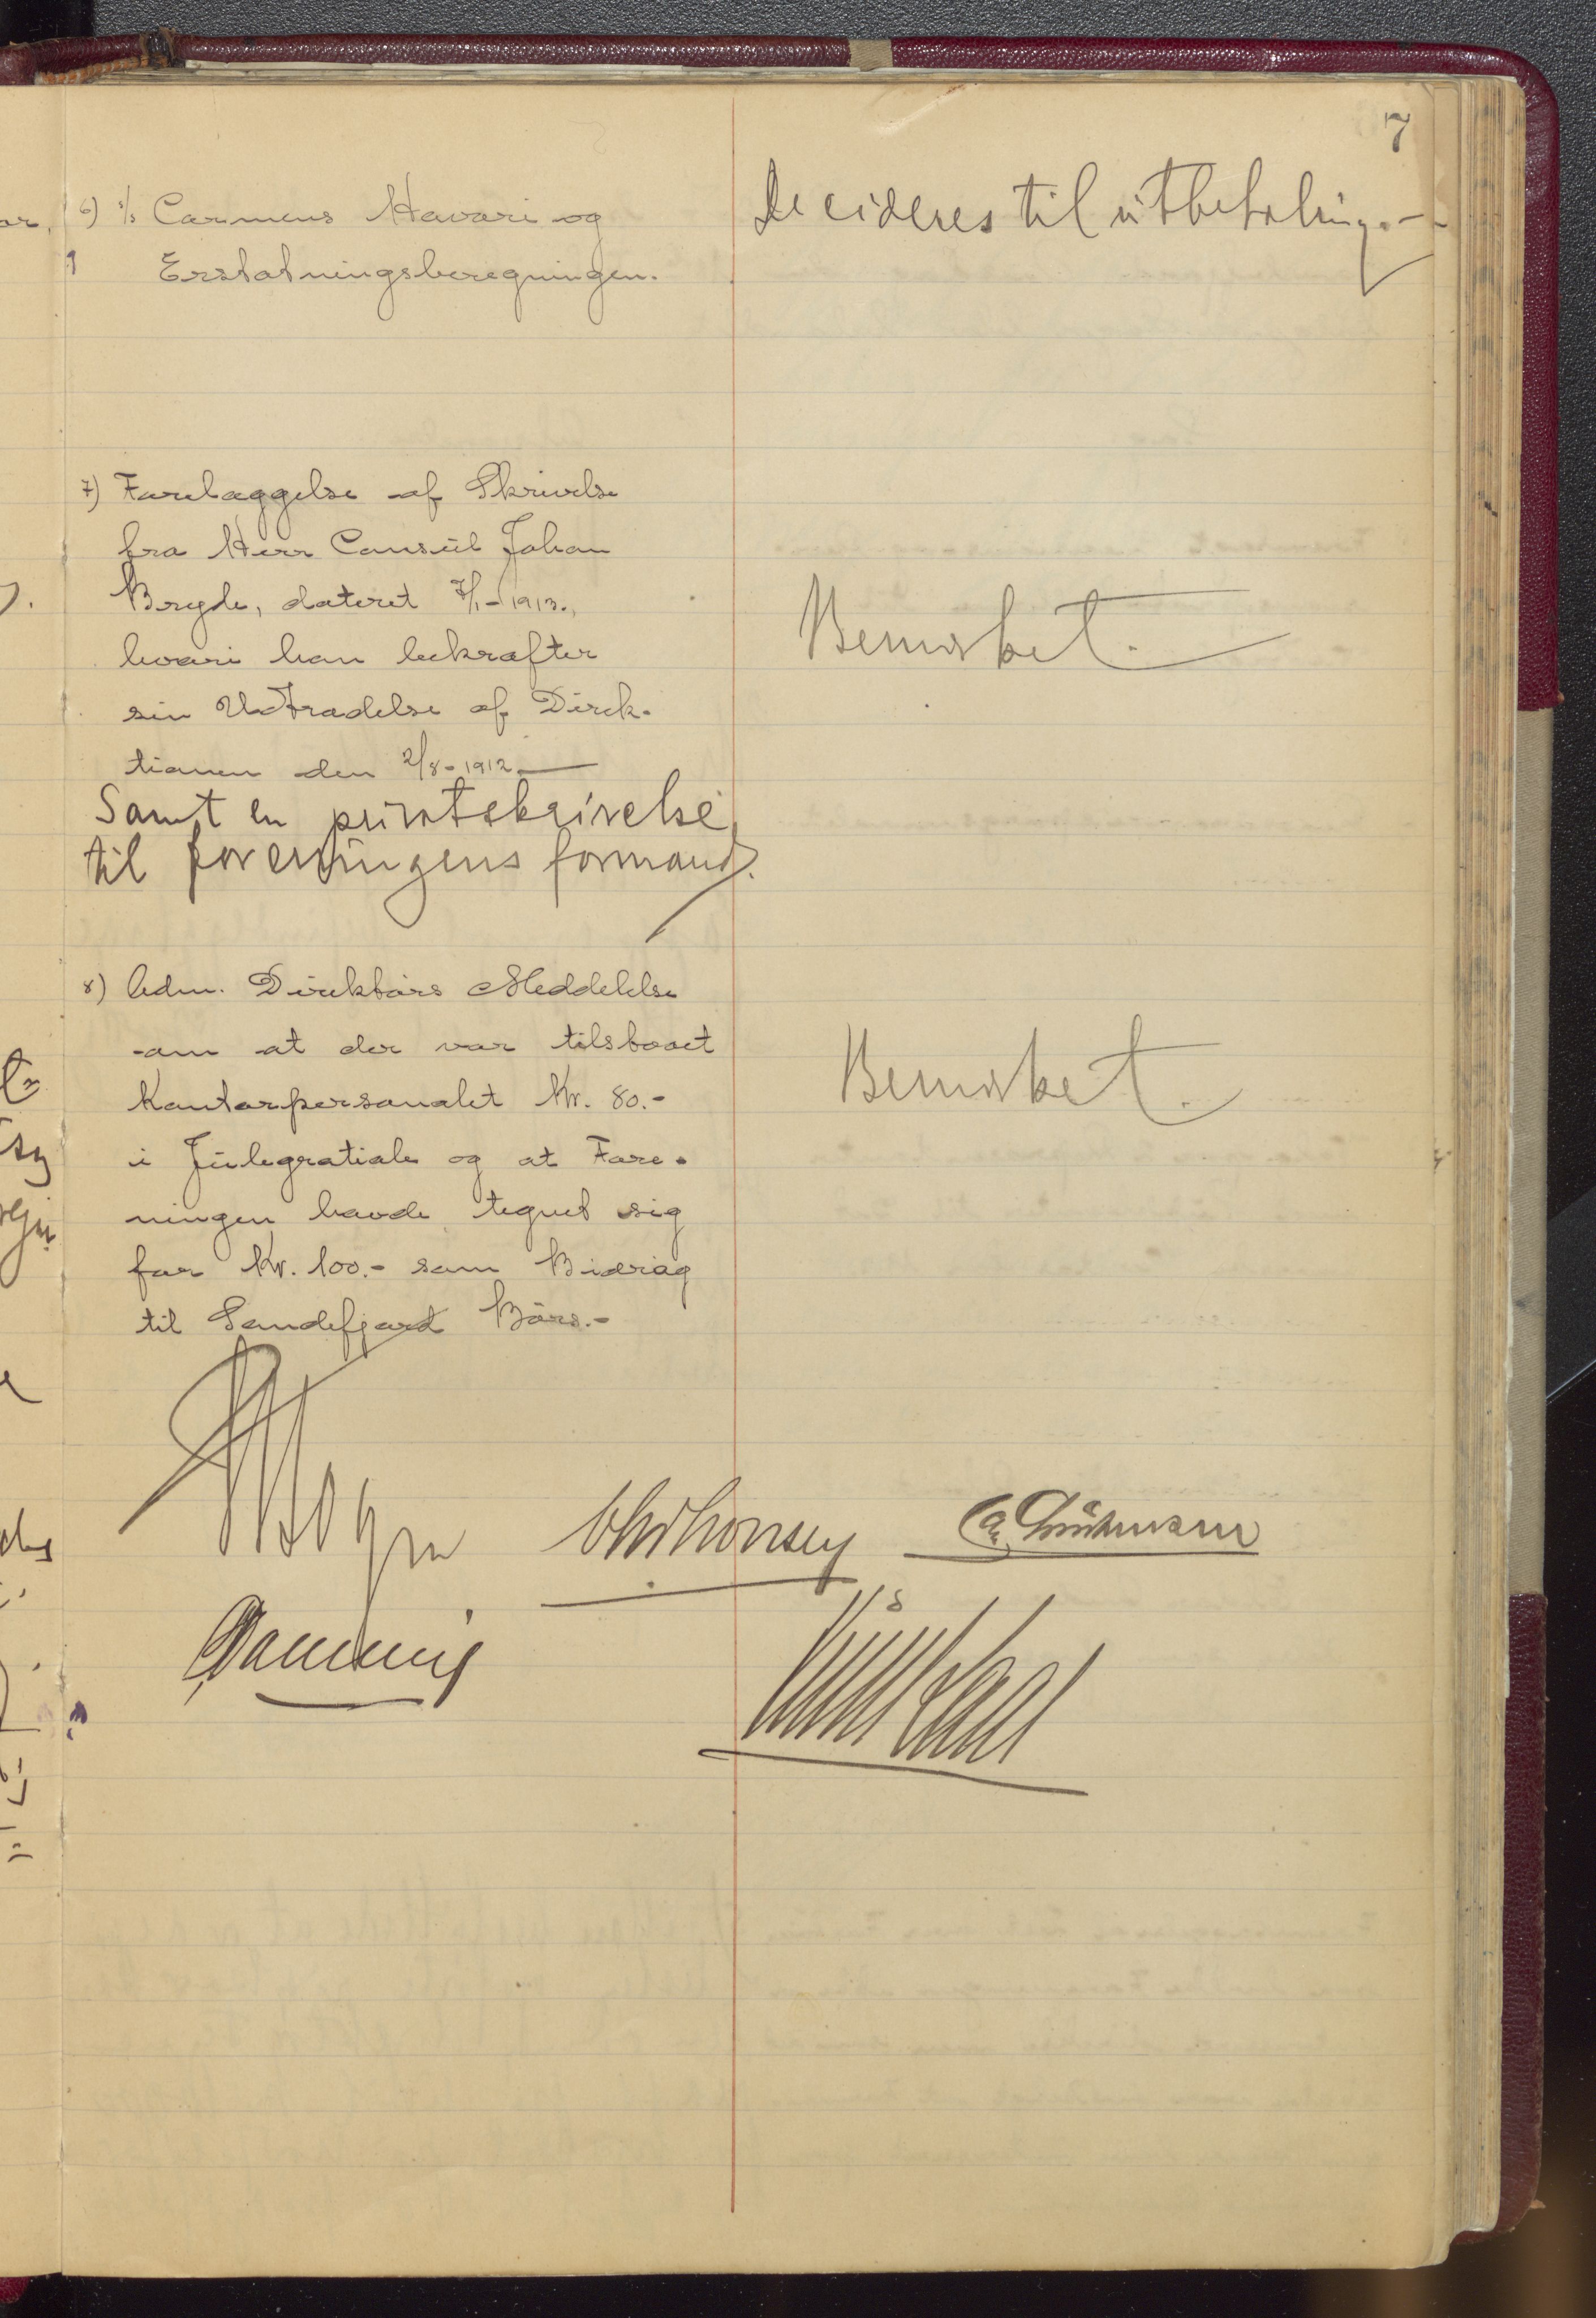 7
6) s/s Carmens Havari og
Erstatningsberegningen.
Decideres til utbetaling.-
7) Forelæggelse af Skrivelse
fra Herr Consul Johan
Bryde, dateret 7/1-1913.,
hvori han bekræfter
sin Udtrædelse af Direk-
tionen den 2/8-1912.
Samt en privatskrivelse
til foreningens formand.
Bemerket.
8) Adm. Direktørs Meddelelse
om at der var tilstaaet
Kontorpersonalet Kr. 80.-
i Julegratiale og at Fore-
ningen havde tegnet sig
for Kr. 100.- som Bidrag
til Sandefjord Børs.-
Bemerket.